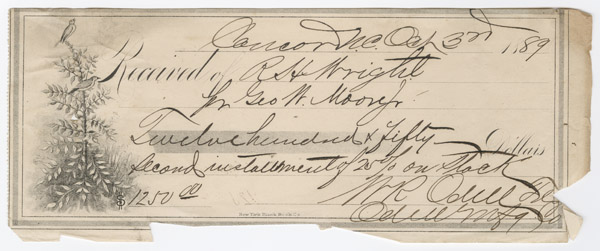 Concord N.C. Oct 3rd 1889
Received of R H Wright
for Geo W. Moore Jr
Twelve hundred & fifty Dollars
Second installment of 25 % on Stock
$1250 00 W R Odell Tr
Odell Mfg Co